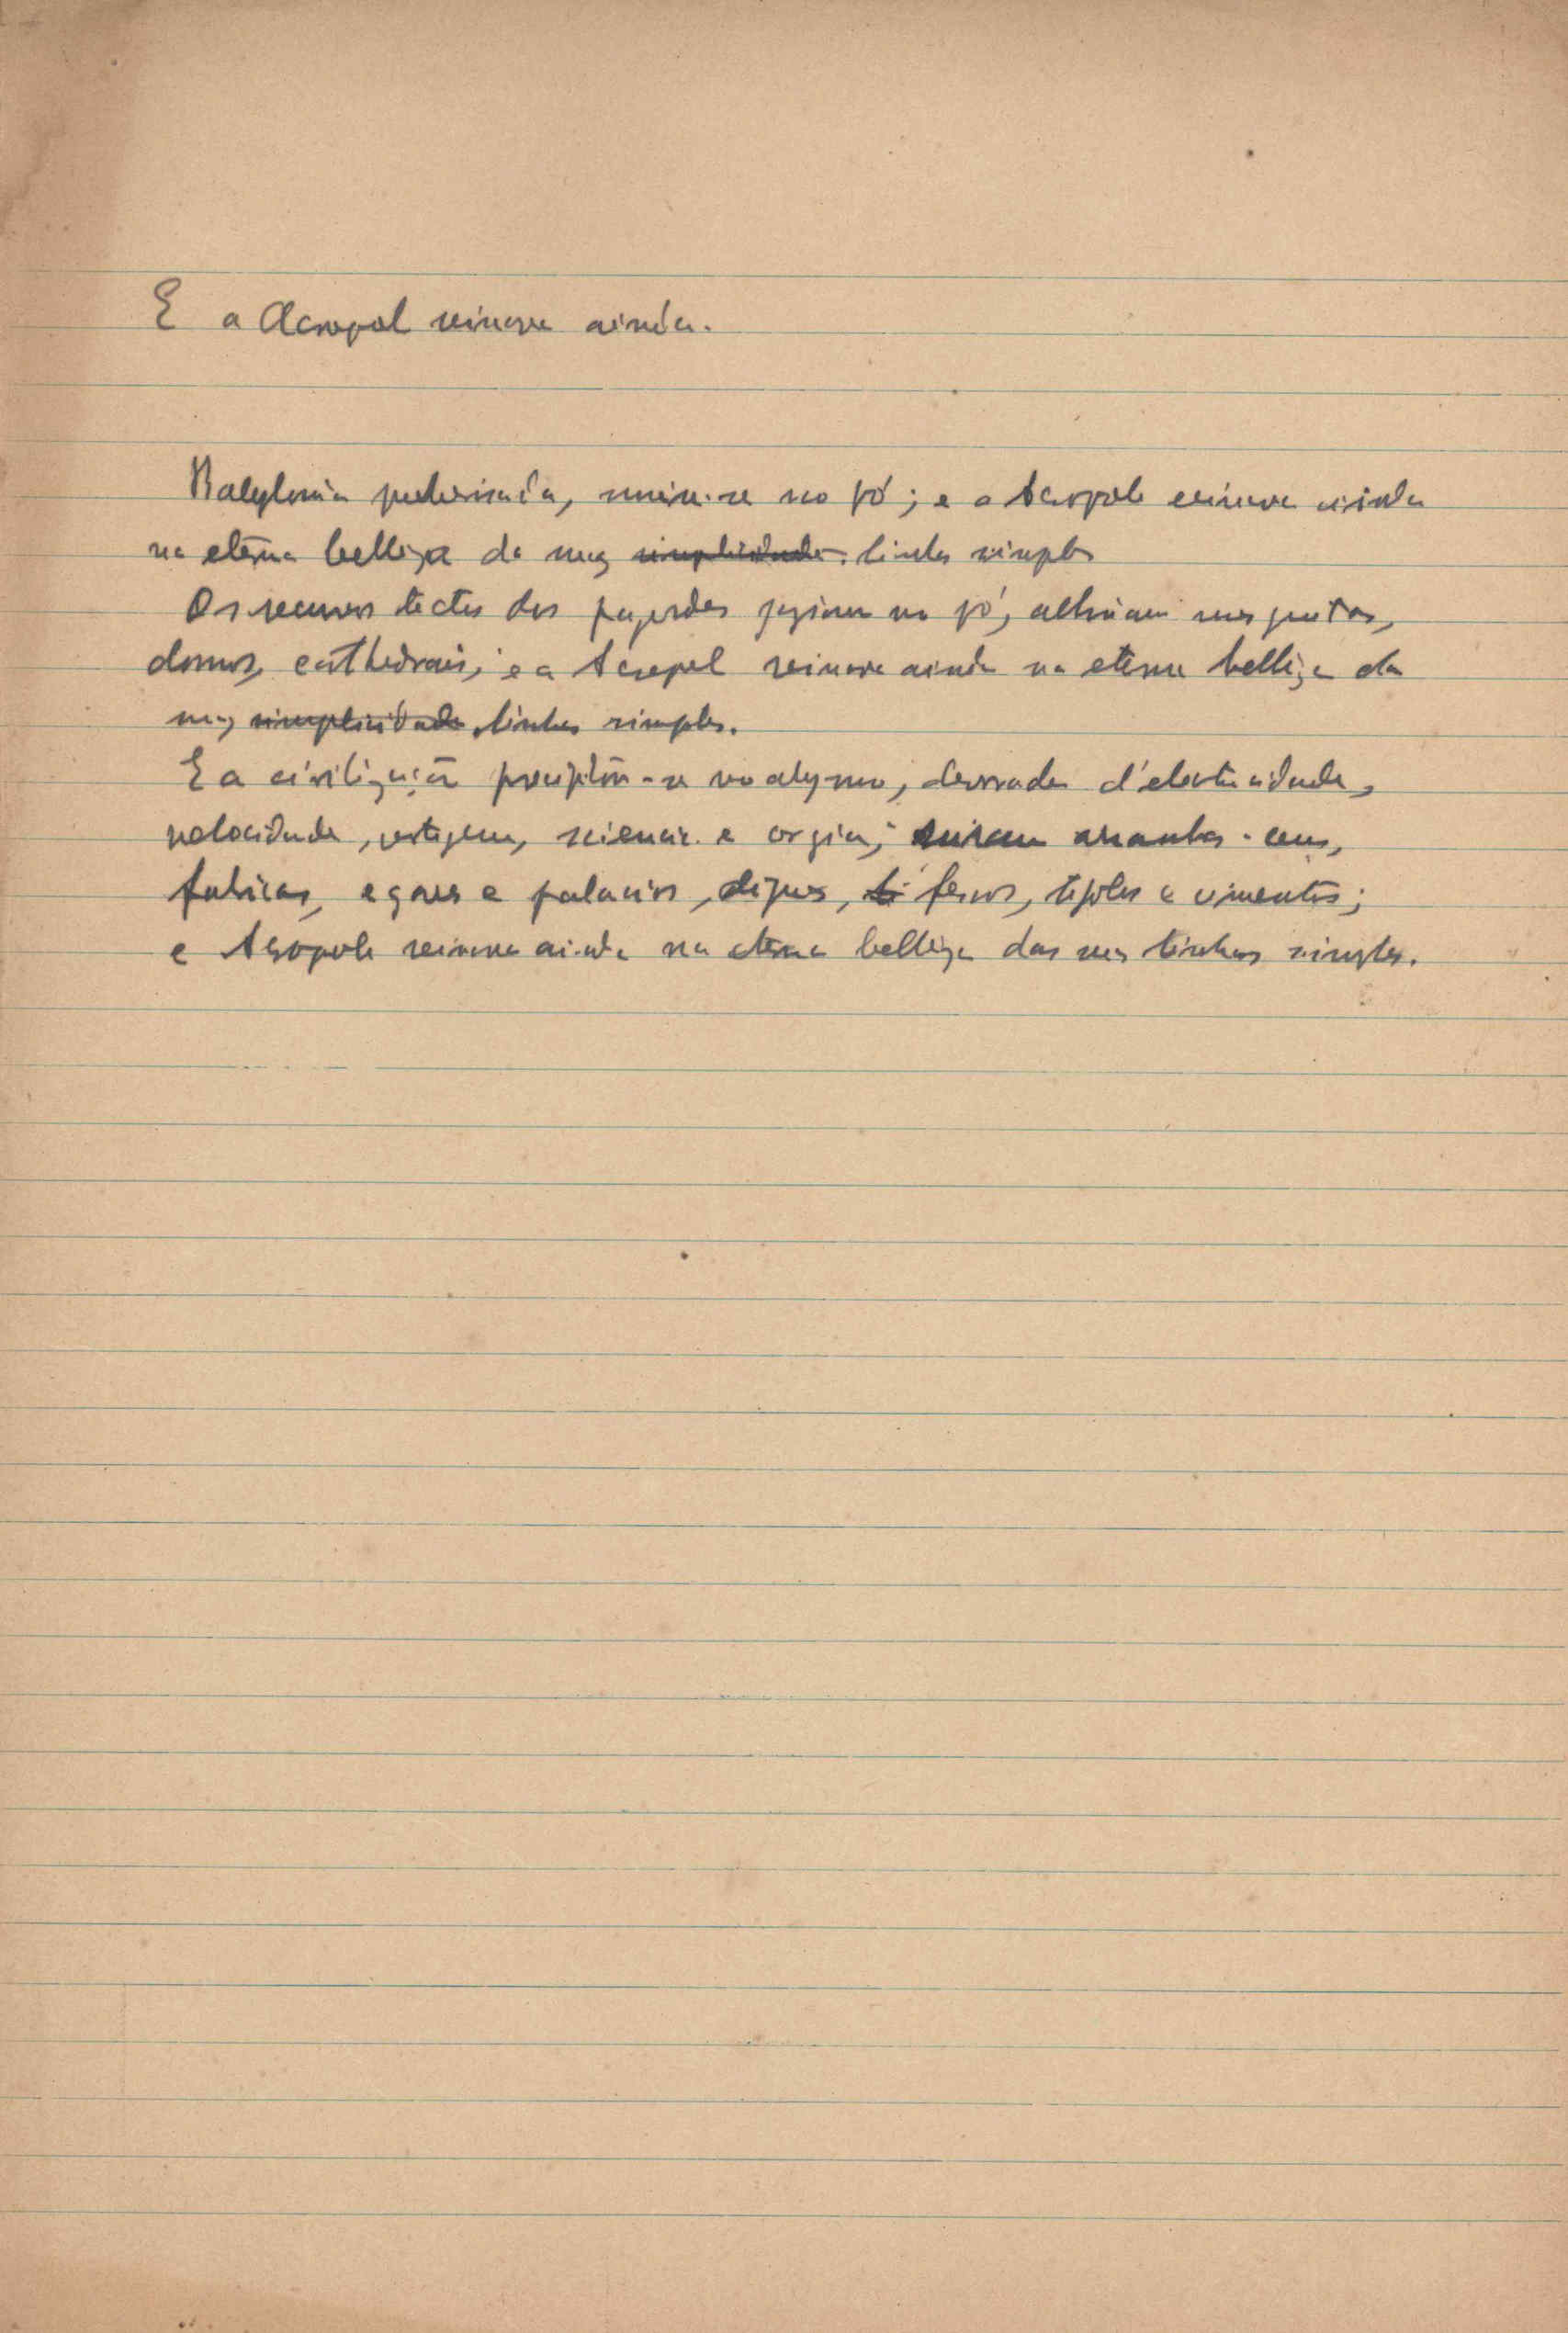 E a Acropol reinava ainda.
Babylonia pulverisada, unira-se ao pó; e a Acropole reinava ainda
na eterna belleza de suas simplicidade. linhas simples
Os recurvos tectos dos pagodes jaziam no pó,
domos, cathedrais; e a Acropol reinava ainda na eterna belleza da
suas simplicidade linhas simples.
E a civilização precipitou-se no abysmo, d'electricidade,
velocidade, vertigem, sciencia e orgia; ruiram arranha-ceus,
fabricas, e gares e palacios, diques, ferros, tijolos e cimentos;
e Acropole reinava ainda na eterna belleza das suas linhas simples.